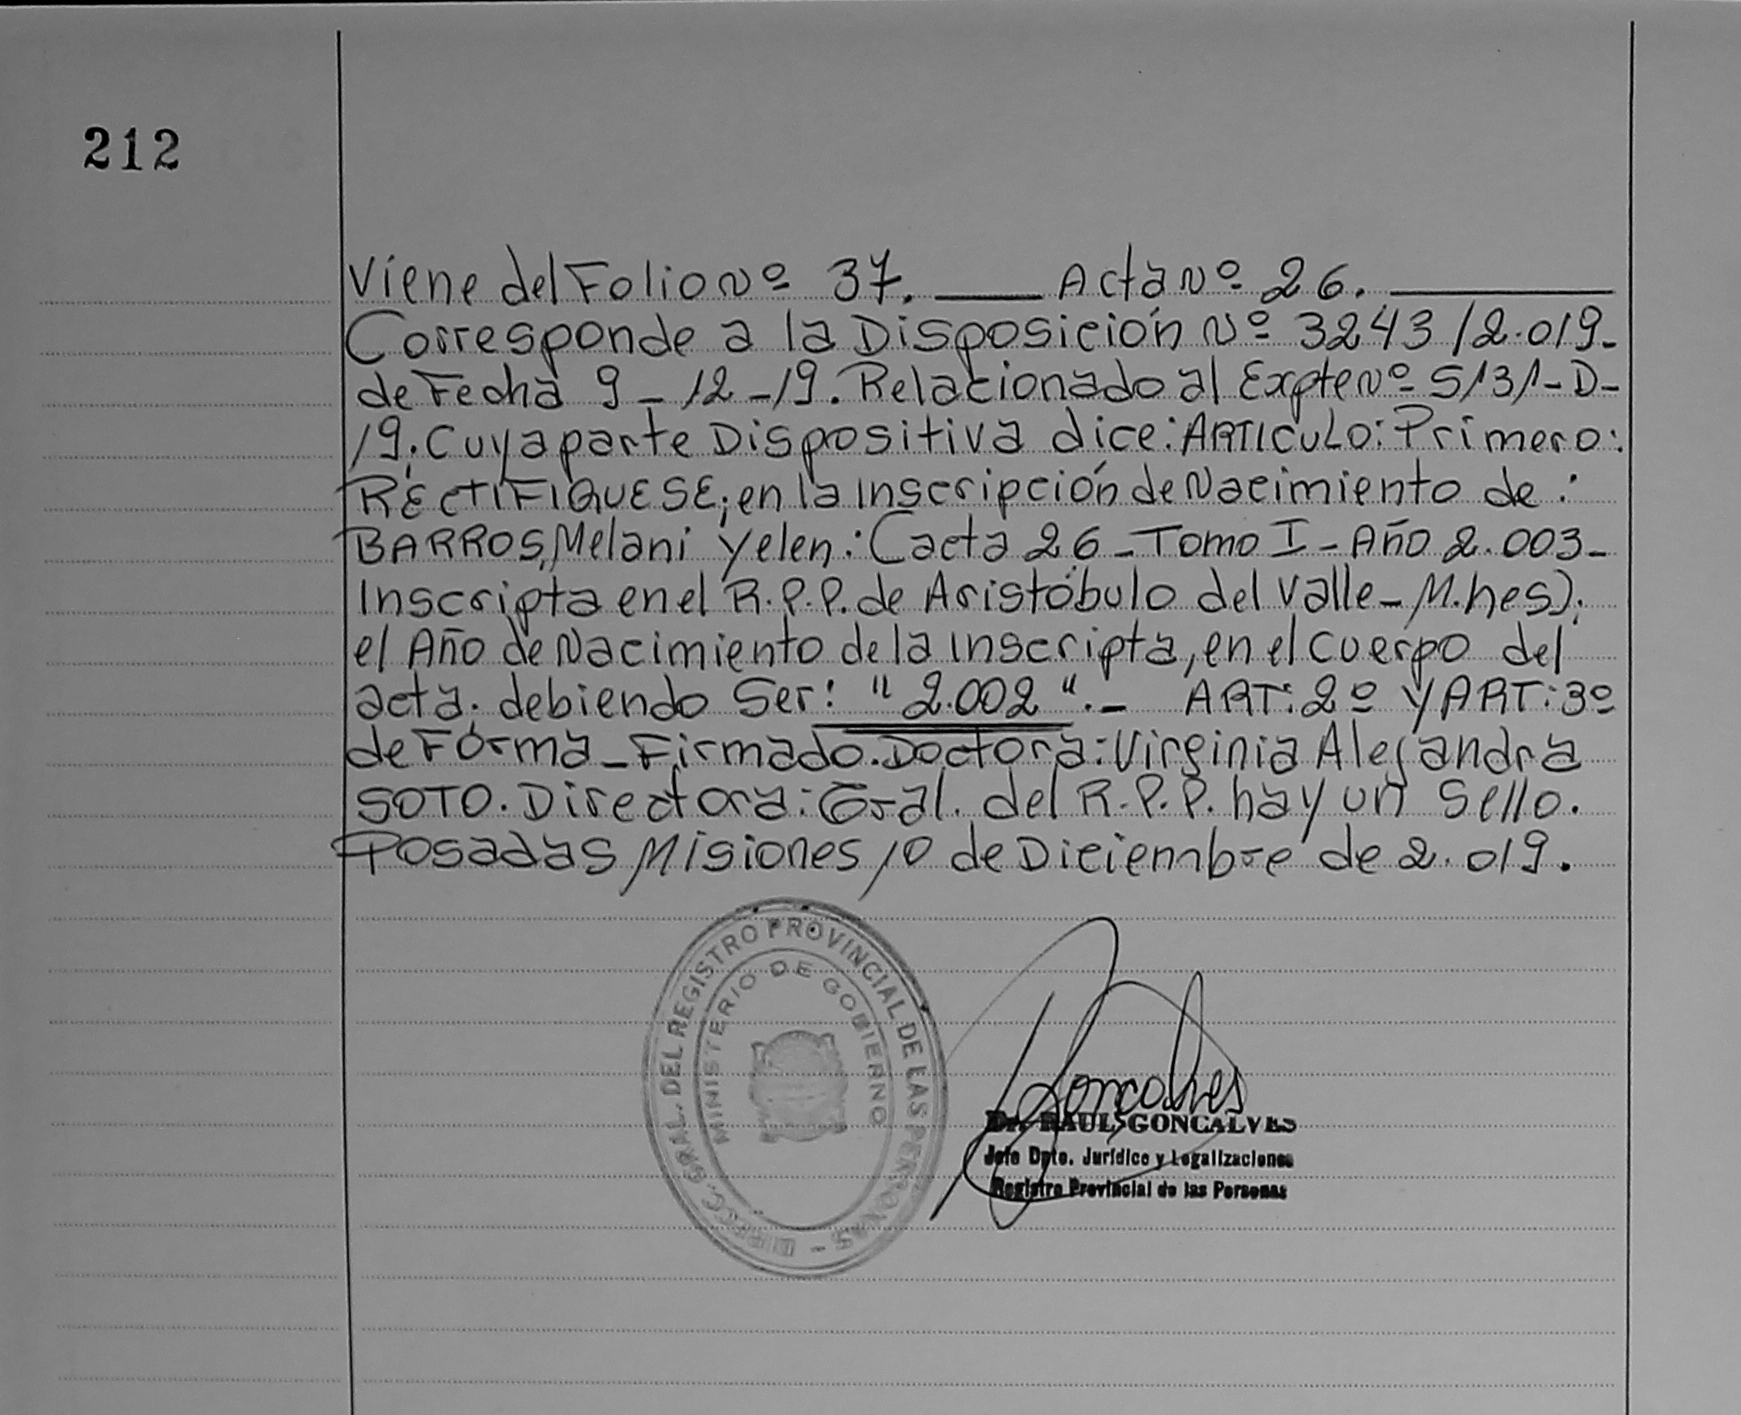 212
Viene del Folio Nº 37. ___ Acta Nº 26. ___
Corresponde a la Disposición Nº 3243/2.019_
de Fecha 9_12_19. Relacionado al Expte Nº 5131_D_
19. Cuya parte Dispositiva dice: ARTICULO: Primero:
RECTIFIQUESE; en la Inscripción de Nacimiento de:
BARROS, Melani Yelen: (acta 26_Tomo I_Año 2.003_
Inscripta en el R.P.P. de Aristóbulo del Valle_M.nes).
el Año de Nacimiento de la inscripta, en el cuerpo del
acta. debiendo Ser: "2.002"._ ART: 2º y ART: 3º
de Forma_Firmado. Doctora: Virginia Alejandra
SOTO. Directora: Gral. del R.P.P. hay un sello.
Posadas Misiones 10 de Diciembre de 2.019.
DIRECC. GRAL. DEL REGISTRO PROVINCIAL DE LAS PERSONAS -
MINISTERIO DE GOBIERNO
Goncalves
Dr. RAUL GONCALVES
Jefe Dpto. Jurídico y Legalizaciones
Registro Provincial de las Personas